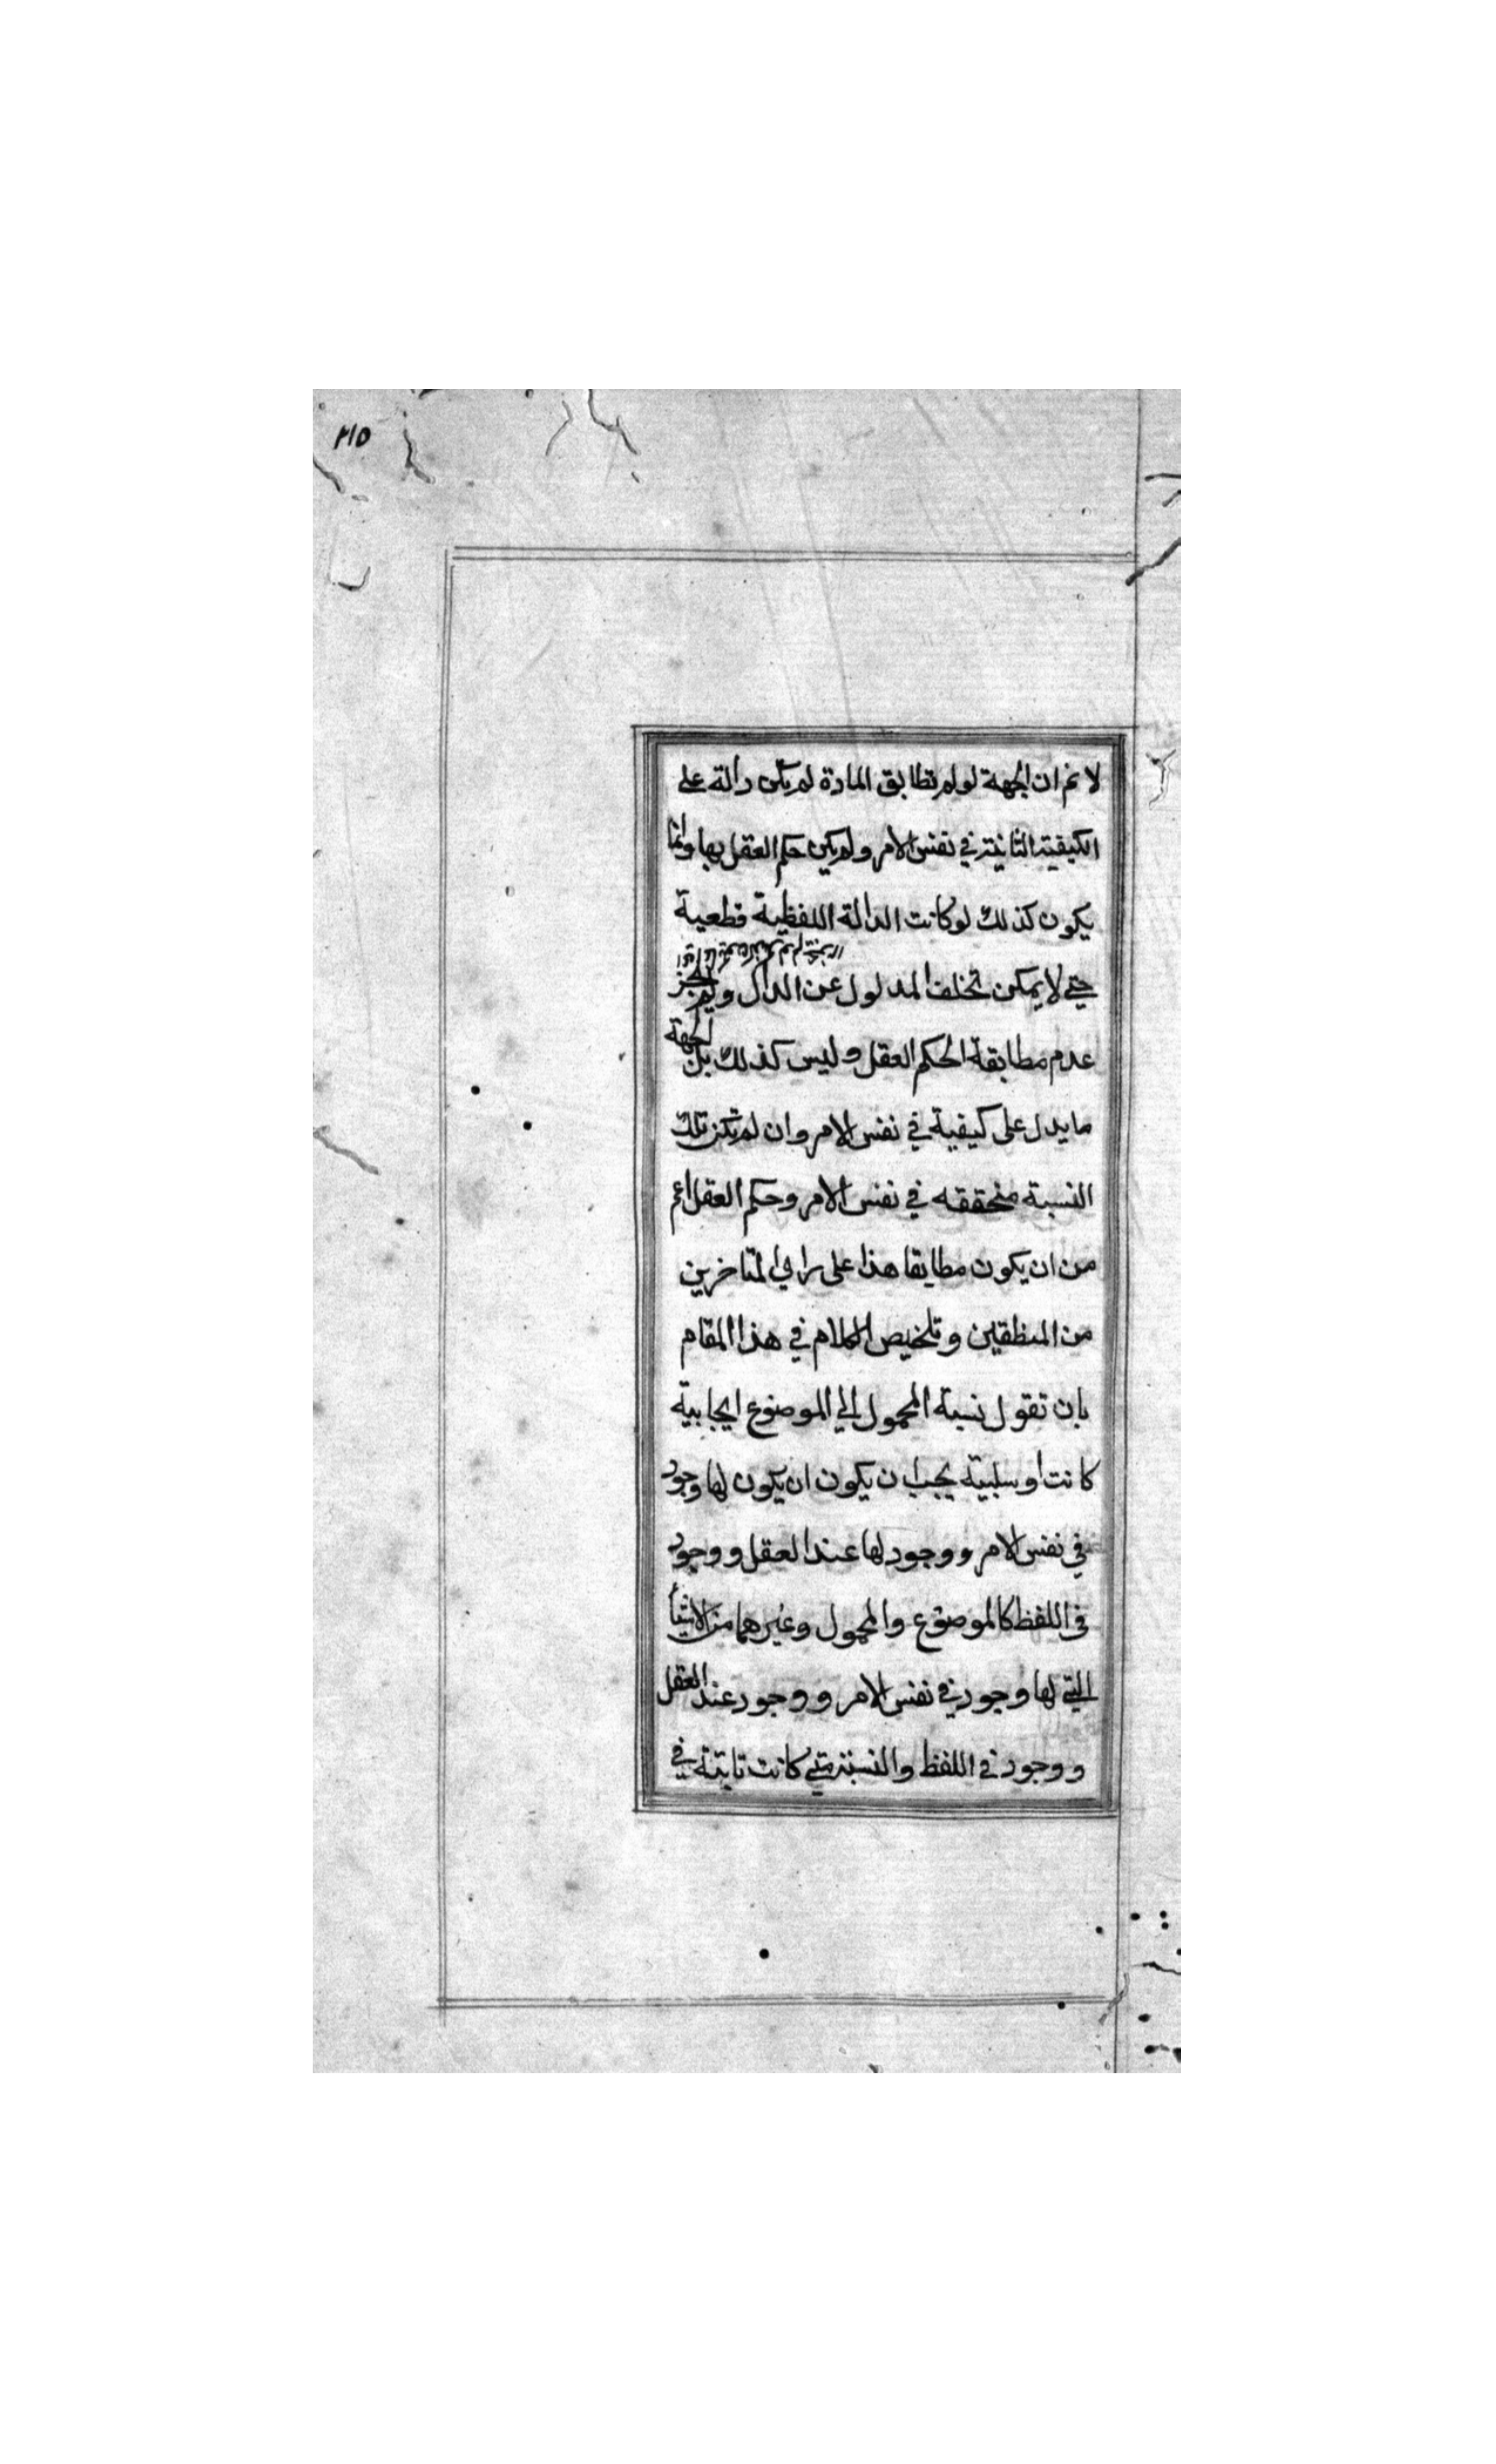 ٢١٥
لا نم ان الجهة لو لم تطابق المادة لم يكن دالة على
الكيفية الثانية في نفس الامر ولم يكن حكم العقل بها وانما
يكون كذلك لو كانت الدالة اللفظية قطعية
حتى لا يمكن تخلف المدلول عن الدال ولم يجز
عدم مطابقة الحكم العقل وليس كذلك بل الجهة
ما يدل على كيفية في نفس الامر وان لم تكن تلك
النسبة متحققه في نفس الامر وحكم العقل اعم
من ان يكون مطابقا هذا على راي المتاخرين
من المنطقين وتلخيص الكلام في هذا المقام
بان تقول نسبة المحمول الى الموضوع ايجابية
كانت او سلبية يجب ان يكون ان يكون لها وجود
في نفس الامر ووجود لها عند العقل ووجود
في اللفظ كالموضوع والمحمول وغيرهما من الاشيأ
التي لها وجود في نفس الامر ووجود عند العقل
ووجود في اللفظ والنسبة متى كانت ثابتة في